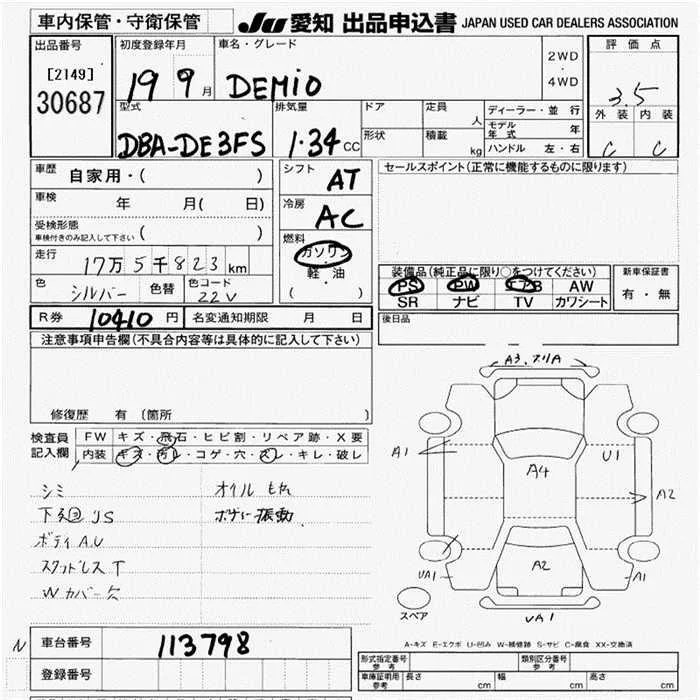 車内保管・守衛保管 JU 愛知 出品申込書 JAPAN USED CAR DEALERS ASSOCIATION
出品番号 初度登録年月 車名・グレード 評価点
[2149] 30687 19 9月 DEMIO 2WD・4WD 3.5
型式 排気量 ドア 定員 人 ディーラー・並行 外装 内装
DBA-DE3FS 1.34 CC 形状 積載 kg モデル年式 年 C C
ハンドル 左・右
車歴 自家用・( ) シフト AT セールスポイント(正常に機能するものに限ります)
車検 年 月( 日) 冷房 AC
受検形態 車検付きのみ記入して下さい ( ) 燃料 ガソリン・軽油 ( )
走行 17万5千823km
装備品(純正品に限り○をつけてください) 新車保証書
色 シルバー 色替 色コード 22V
PS PW エアB AW 有・無
SR ナビ TV カワシート
R券 10410円 名変通知期限 月 日 後日品
注意事項申告欄(不具合内容等は具体的に記入して下さい)
修復歴 有 〔箇所 〕
検査員記入欄 FW キズ・飛石・ヒビ割・リペア跡・X要
内装 キズ・汚レ・コゲ・穴・スレ・キレ・破レ
シミ オイルもれ
下廻JS ボデー振動
ボディA.U
スタッドレスT
Wカバー欠
A3.ズリA
A1
U1
A4
A2
A2
UA1
A1
UA1
スペア
A-キズ E-エクボ U-凹み W-補修跡 S-サビ C-腐食 XX-交換済
N 車台番号 113798
登録番号
形式指定番号 参考 類別区分番号 参考
車庫証明用 参考 長さ cm 幅 cm 高さ cm